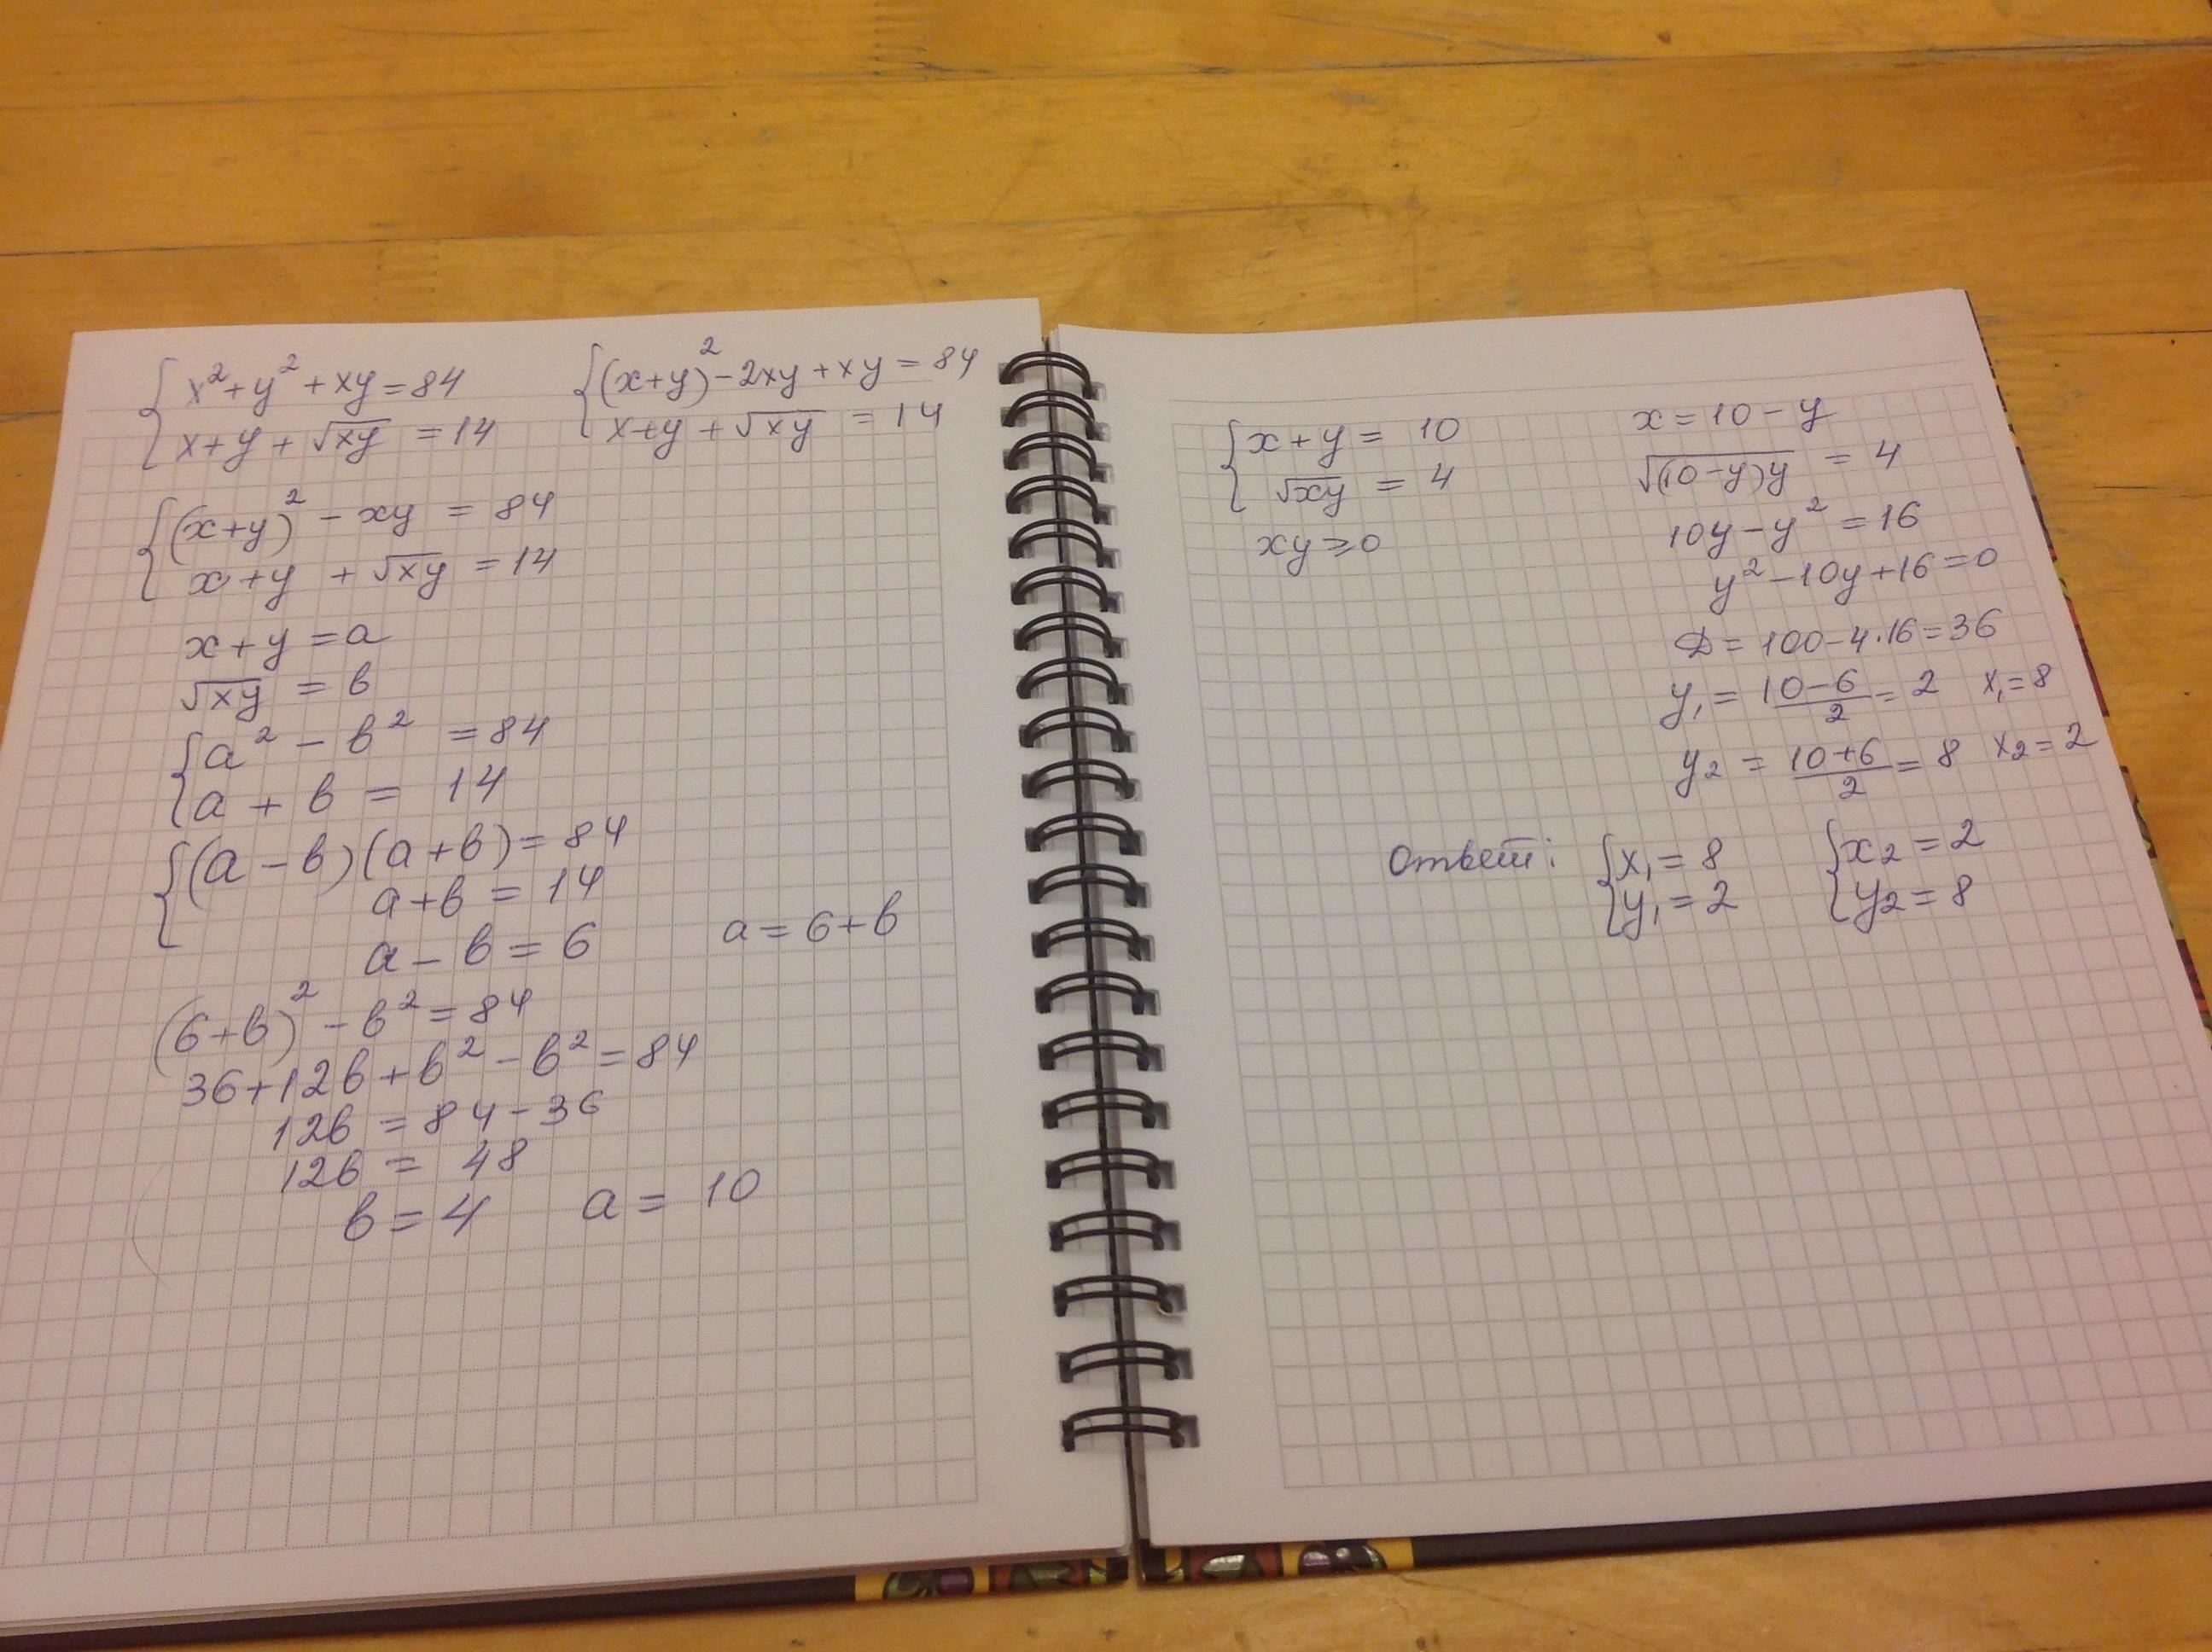 { x² + y² + xy = 84
x + y + √xy = 14
{ (x+y)² - 2xy + xy = 84
x+y + √xy = 14
{ (x+y)² - xy = 84
x + y + √xy = 14
x + y = a
√xy = b
{ a² - b² = 84
a + b = 14
{ (a - b)(a + b) = 84
a + b = 14
a - b = 6 a = 6 + b
(6+b)² - b² = 84
36 + 12b + b² - b² = 84
12b = 84 - 36
12b = 48
b = 4 a = 10
{ x + y = 10
√xy = 4
xy ⩾ 0
x = 10 - y
√(10-y)y = 4
10y - y² = 16
y² - 10y + 16 = 0
D = 100 - 4·16 = 36
y₁ = (10-6)/2 = 2 x₁ = 8
y₂ = (10+6)/2 = 8 x₂ = 2
Ответ: { x₁ = 8 { x₂ = 2
y₁ = 2 y₂ = 8